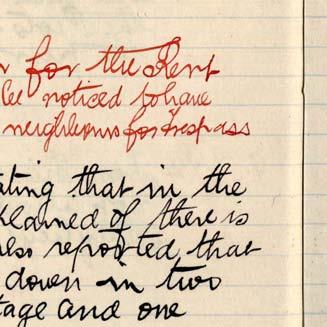 for the Rent
noticed to have
neighbours for trespass
ating that in the
claimed of there is
also reported that
down in two
tage and one